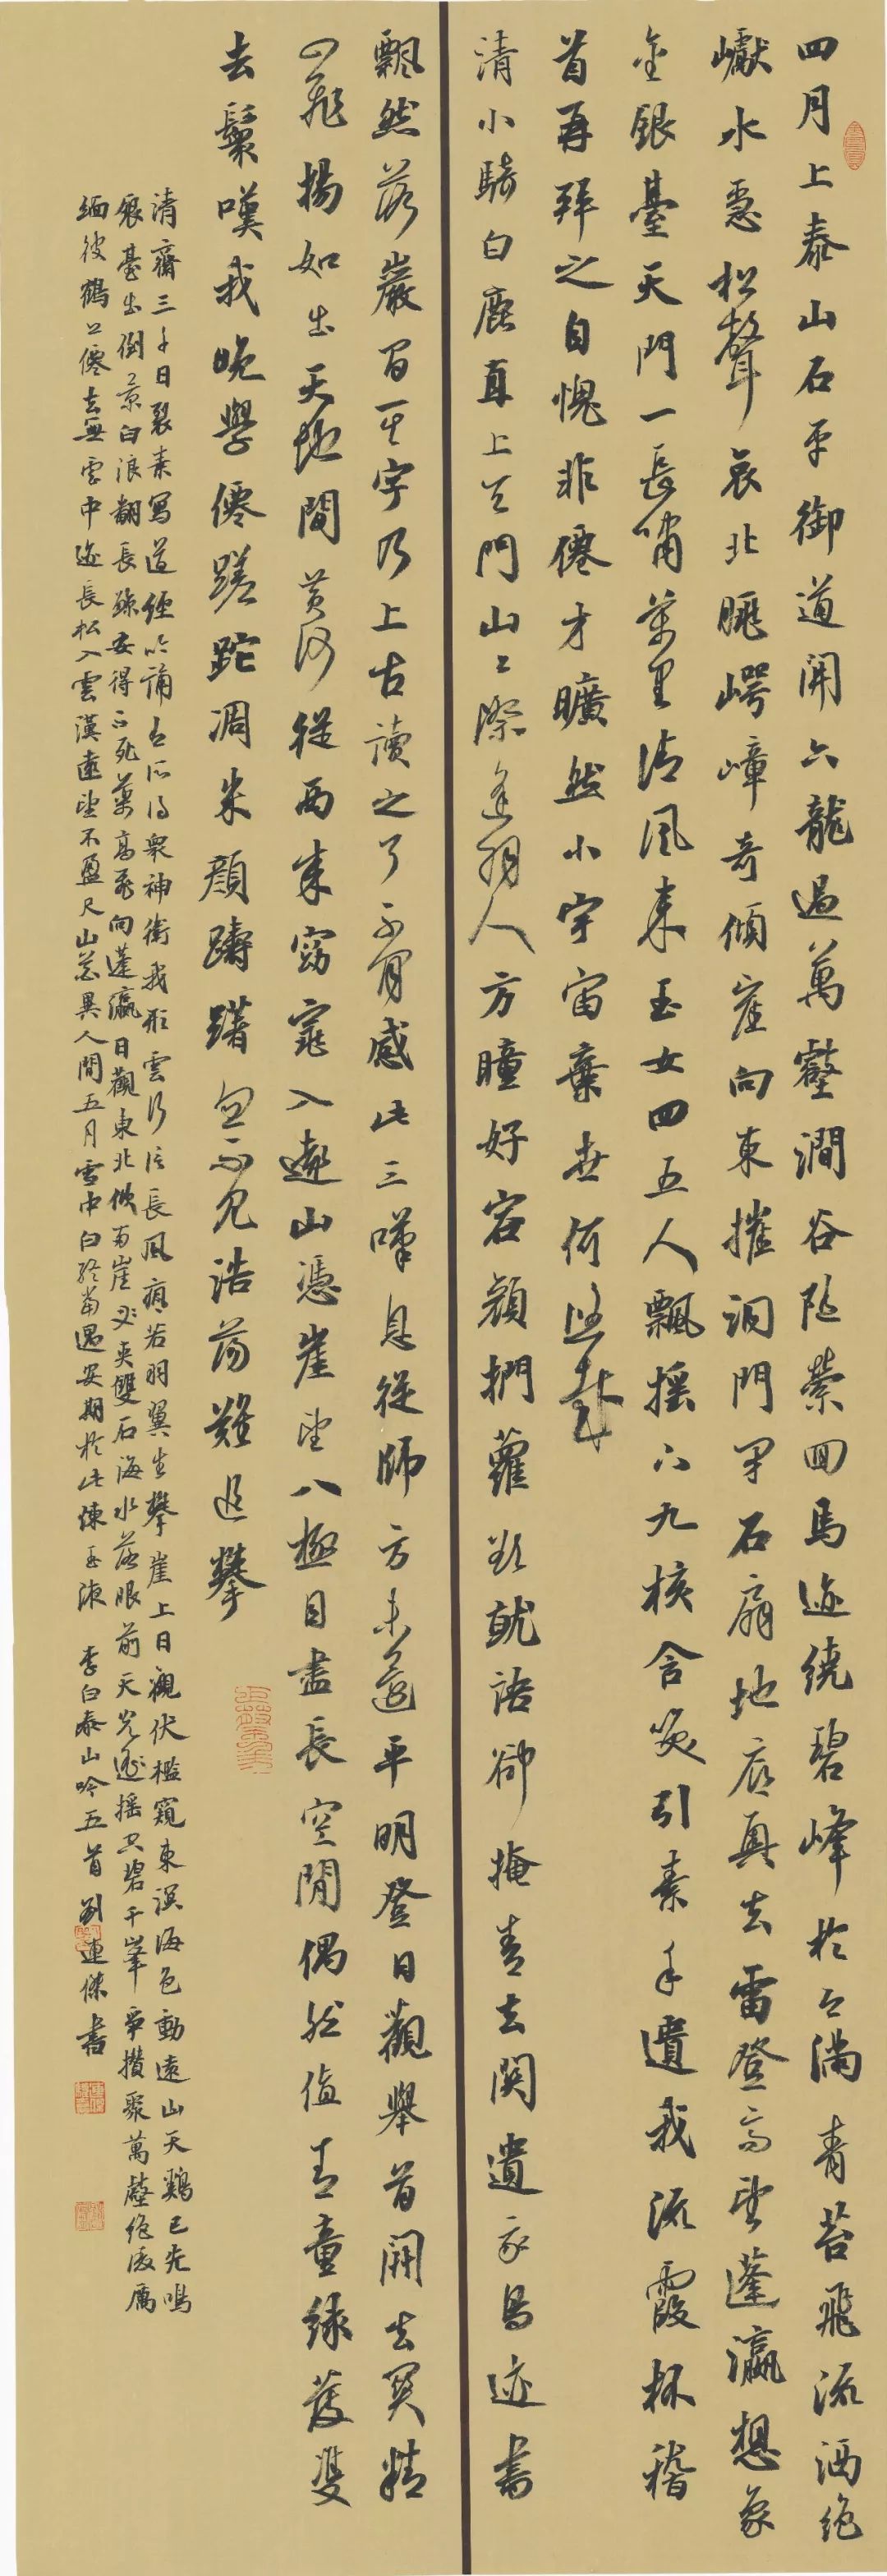 四月上泰山石平御道開六龍過萬壑澗谷隨縈回馬迹繞碧峰於今滿青苔飛流洒絕
巘水急松聲哀北眺崿嶂奇傾崖向東摧洞門閉石扇地底興雲雷登高望蓬瀛想象
金銀臺天門一長嘯萬里清風來玉女四五人飄搖下九垓含笑引素手遺我流霞杯稽
首再拜之自愧非僊才曠然小宇宙棄世何悠哉
清小騎白鹿直上天門山山際逢羽人方瞳好容顏捫蘿欲就語卻掩青雲關遺我鳥迹書
飄然落巖間其字乃上古讀之了不閒感此三嘆息從師方未還平明登日觀舉首開雲關精
神飛揚如出天地間黃河從西來窈窕入遠山憑崖望八極目盡長空閒偶然值青童綠髮雙
雲鬟嘆我晚學僊蹉跎凋朱顏躊躇忽不見浩蕩難追攀
清齋三千日裂素寫道經吟誦有所得眾神衛我形雲行信長風颯若羽翼生攀崖上日觀伏檻窺東溟海色動遠山天雞已先鳴
銀臺出倒景白浪翻長鯨安得不死藥高飛向蓬瀛日觀東北傾兩崖夾雙石海水落眼前天光遙搖空碧千峰爭攢聚萬壑絕凌厲
緬彼鶴上僊去無雲中迹長松入雲漢遠望不盈尺山花異人間五月雪中白終當遇安期於此煉玉液 李白泰山吟五首 劉連傑書